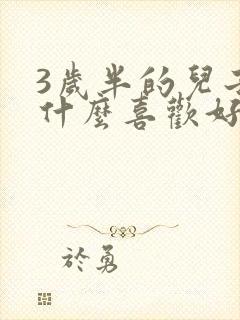 3歲半的兒
什麼喜歡好
於勇